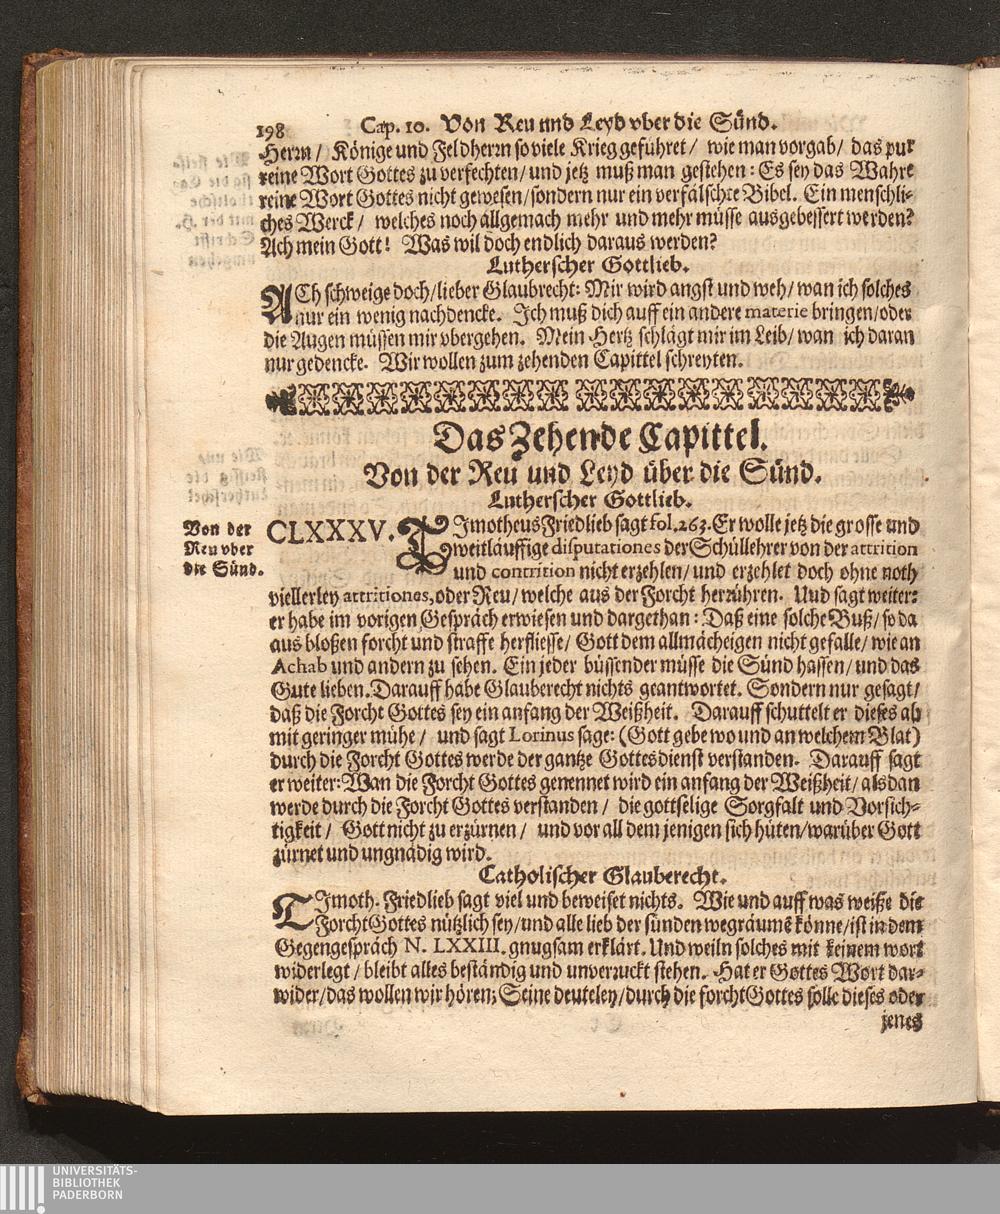 198 Cap. 10. Von Reu und Leyd vber die Sünd.
Herrn / Könige und Feldherrn so viele Krieg geführet / wie man vorgab / das pur
reine Wort Gottes zu verfechten / und jetz muß man gestehen: Es sey das Wahre
reine Wort Gottes nicht gewesen / sondern nur ein verfälschte Bibel. Ein menschli-
ches Werck / welches noch allgemach mehr und mehr müsse ausgebessert werden?
Ach mein Gott! Was wil doch endlich daraus werden?
Lutherscher Gottlieb.
ACh schweige doch / lieber Glaubrecht: Mir wird angst und weh / wan ich solches
nur ein wenig nachdencke. Ich muß dich auff ein andere materie bringen / oder
die Augen müssen mir vbergehen. Mein Hertz schlägt mir im Leib / wan ich daran
nur gedencke. Wir wollen zum zehenden Capittel schreyten.
Das Zehende Capittel.
Von der Reu und Leyd über die Sünd.
Lutherscher Gottlieb.
Von der
Reu vber
die Sünd.
CLXXXV. TImotheus Friedlieb sagt fol. 263. Er wolle jetz die grosse und
weitläuffige disputationes der Schüllehrer von der attrition
und contrition nicht erzehlen / und erzehlet doch ohne noth
viellerley attritiones, oder Reu / welche aus der Forcht herrühren. Und sagt weiter:
er habe im vorigen Gespräch erwiesen und dargethan: Daß eine solche Buß / so da
aus bloßen forcht und straffe herfliesse / Gott dem allmächeigen nicht gefalle / wie an
Achab und andern zu sehen. Ein jeder büssender müsse die Sünd hassen / und das
Gute lieben. Darauff habe Glauberecht nichts geantwortet. Sondern nur gesagt /
daß die Forcht Gottes sey ein anfang der Weißheit. Darauff schuttelt er dieses ab
mit geringer mühe / und sagt Lorinus sage: (Gott gebe wo und an welchem Blat)
durch die Forcht Gottes werde der gantze Gottesdienst verstanden. Darauff sagt
er weiter: Wan die Forcht Gottes genennet wird ein anfang der Weißheit / als dan
werde durch die Forcht Gottes verstanden / die gottselige Sorgfalt und Vorsich-
tigkeit / Gott nicht zu erzürnen / und vor all dem jenigen sich hüten / warüber Gott
zürnet und ungnädig wird.
Catholischer Glauberecht.
TImoth. Friedlieb sagt viel und beweiset nichts. Wie und auff was weiße die
Forcht Gottes nützlich sey / und alle lieb der sünden wegräumē könne / ist in dem
Gegengespräch N. LXXIII. gnugsam erklärt. Und weiln solches mit keinem wort
widerlegt / bleibt alles beständig und unveruckt stehen. Hat er Gottes Wort dar-
wider / das wollen wir hören; Seine deuteley / durch die forcht Gottes solle dieses oder
jenes
UNIVERSITÄTS-
BIBLIOTHEK
PADERBORN